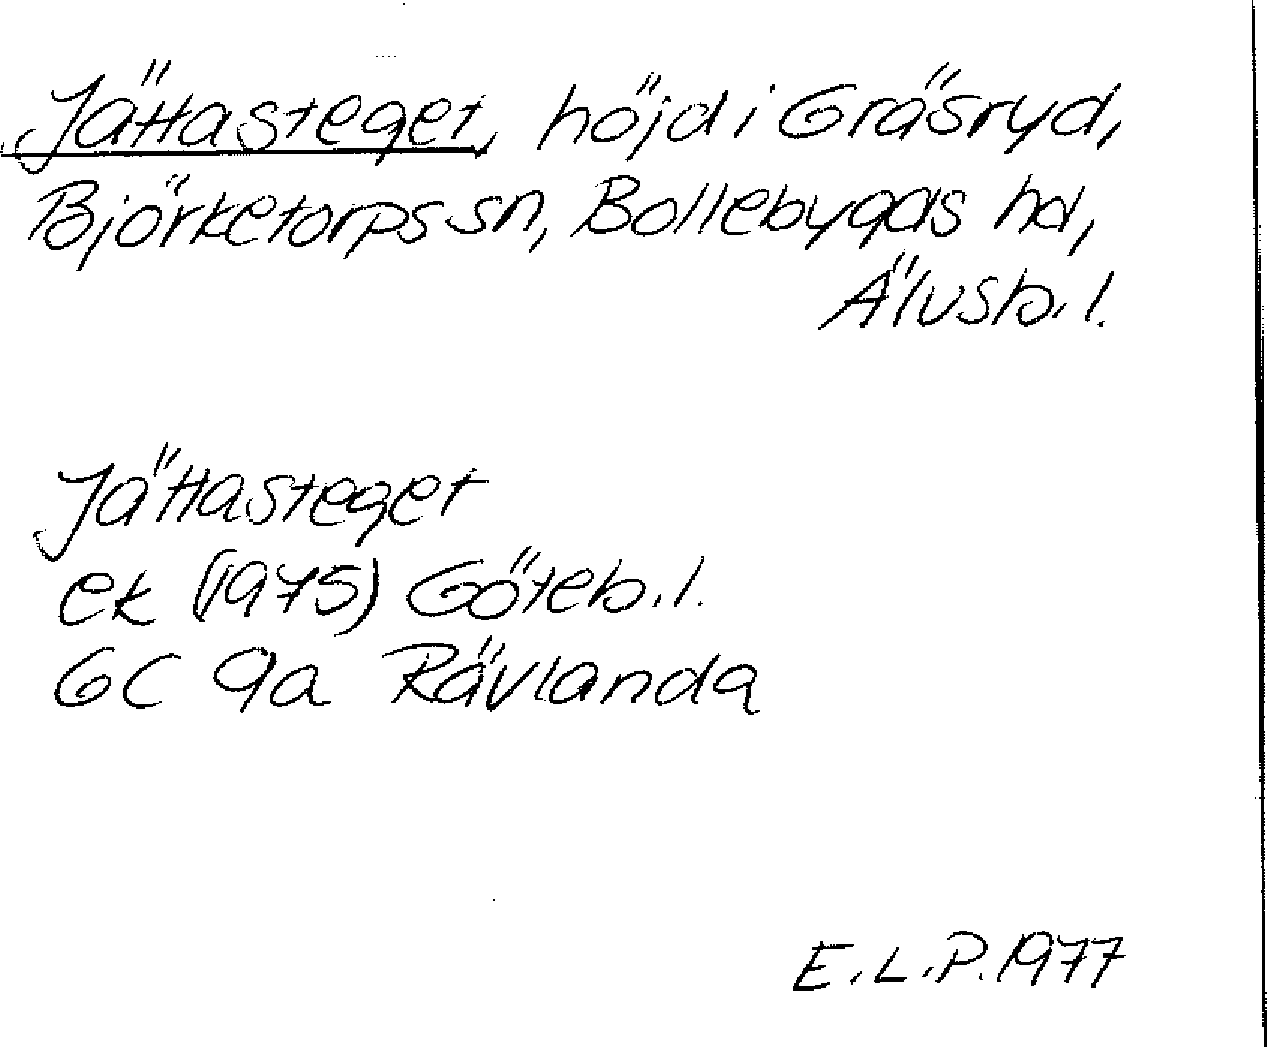 Jättasteget, höjd i Gräsryd,
Björketorps sn, Bollebygds hd,
Älvsb. l.
Jättasteget
ek (1975) Göteb. l.
6C 9a Rävlanda
E. L. P. 1977